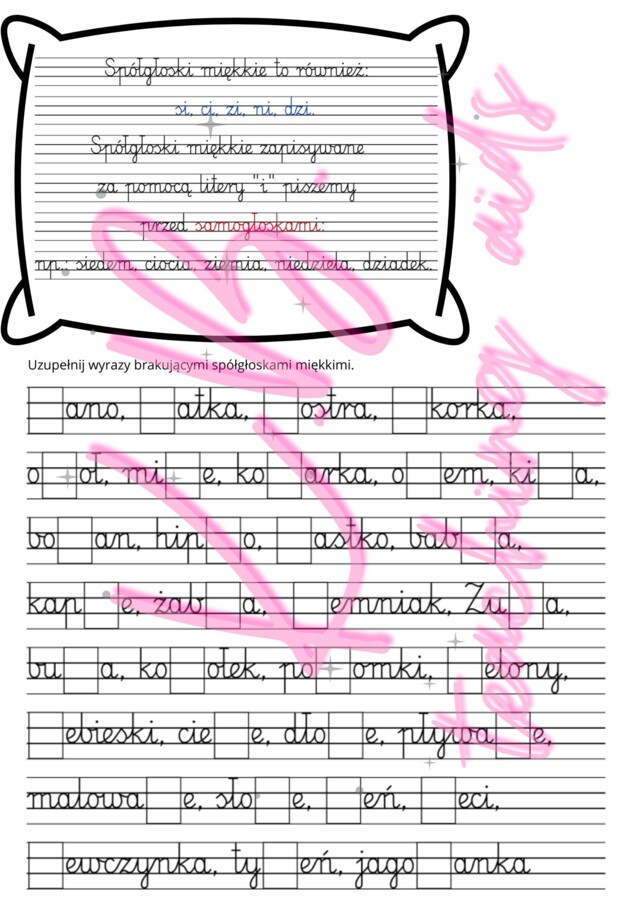 Spółgłoski miękkie to również:
si, ci, zi, ni, dzi.
Spółgłoski miękkie zapisywane
za pomocą litery "i" piszemy
przed samogłoskami:
np.: siedem, ciocia, ziemia, niedziela, dziadek.
Uzupełnij wyrazy brakującymi spółgłoskami miękkimi.
ano, atka, ostra, korka,
o oł, mi e, ko arka, o em, ki a,
bo an, hip o, astko, bab a,
kap e, żab a, emniak, Zu a,
bu a, ko ołek, po omki, elony,
ebieski, cie e, dło e, pływa e,
malowa e, sło e, eń, eci,
ewczynka, ty eń, jago anka